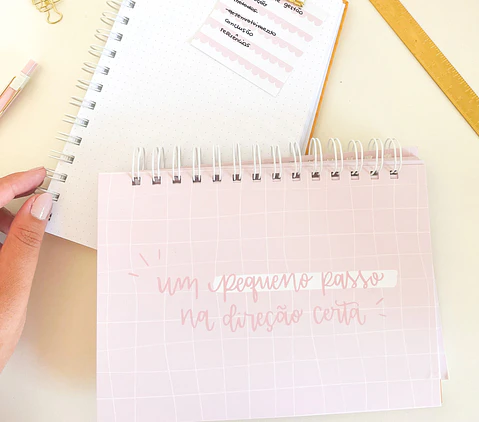 gestão
desenvolvimento
conclusão
referências
um pequeno passo
na direção certa